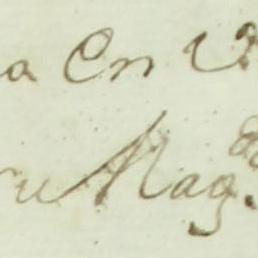 a en V.
su Mag.d